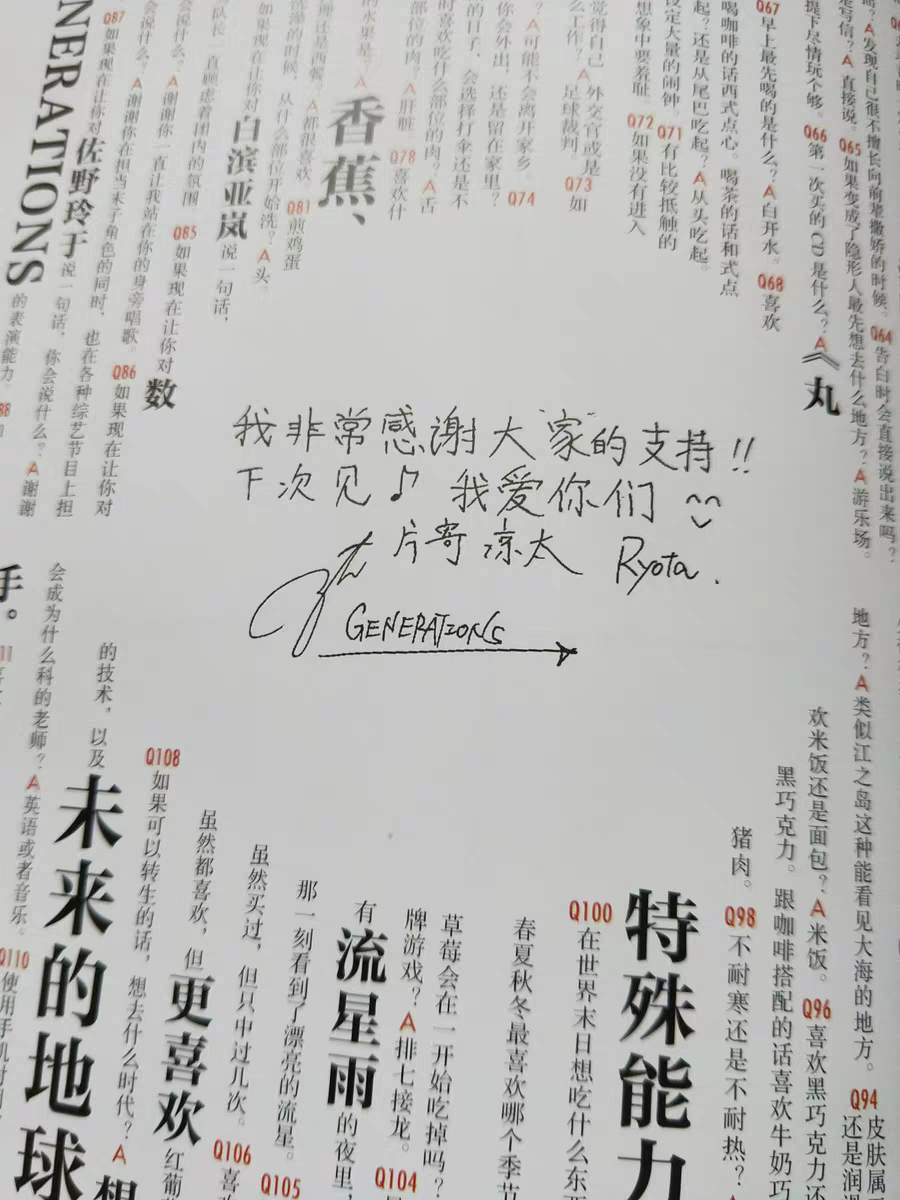 Q67早上最先喝的是什么？A白开水。Q68喜欢
喝咖啡的话西式点心。喝茶的话和式点
起？还是从尾巴吃起？A从头吃起。
设定大量的闹钟。Q71有比较抵触的
想象中要羞耻。Q72如果没有进入
觉得自己
外交官或是
么工作？A足球裁判。Q73如
A可能不会离开家乡。Q74
你会外出，还是留在家里？
的日子，会选择打伞还是不
时喜欢吃什么部位的肉？A舌
部位的肉？A肝脏。Q78喜欢什
的水果是？A香蕉、
还是西餐？A都很喜欢。Q81煎鸡蛋
洗澡的时候，从什么部位开始洗？A头。
如果现在让你对白滨亚岚说一句话，
队长一直顾虑着团内的氛围
Q85如果现在让你对数
会说什么？A谢谢你一直让我站在你的身旁唱歌。Q86如果现在让你对
会说什么？A谢谢你在担当末子角色的同时，也在各种综艺节目上担
Q87如果现在让你对佐野玲于说一句话，你会说什么？A谢谢
NERATIONS
的表演能力。
告白时会直接说出来吗？
A发现自己很不擅长向前辈撒娇的时候。Q64
是写信？A直接说。Q65如果变成了隐形人最先想去什么地方？A游乐场。
提下尽情玩个够。Q66第一次买的CD是什么？A《丸
我非常感谢大家的支持!!
下次见♪ 我爱你们
片寄凉太 Ryota.
GENERATIONS
地方？A类似江之岛这种能看见大海的地方。Q94皮肤属
还是润
欢米饭还是面包？A米饭。Q96喜欢黑巧克力还
黑巧克力。跟咖啡搭配的话喜欢牛奶巧
猪肉。Q98不耐寒还是不耐热？
特殊能力
Q100在世界末日想吃什么东
春夏秋冬最喜欢哪个季节
草莓会在一开始吃掉吗？
牌游戏？A排七接龙。Q104
有流星雨的夜里，
那一刻看到了漂亮的流星。Q105
虽然买过，但只中过几次。Q106喜
虽然都喜欢，但更喜欢红葡
Q108如果可以转生的话，想去什么时代？A想
的技术，以及未来的地球
会成为什么科的老师？A英语或者音乐。Q110
使用手机时
手。